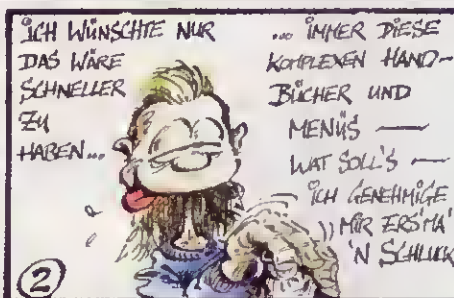 ICH WÜNSCHTE NUR
DAS WÄRE
SCHNELLER
ZU
HABEN...
... IMMER DIESE
KOMPLEXEN HAND-
BÜCHER UND
MENÜS —
WAT SOLL'S —
ICH GENEHMIGE
MIR ERS'MA'
'N SCHLUCK
2